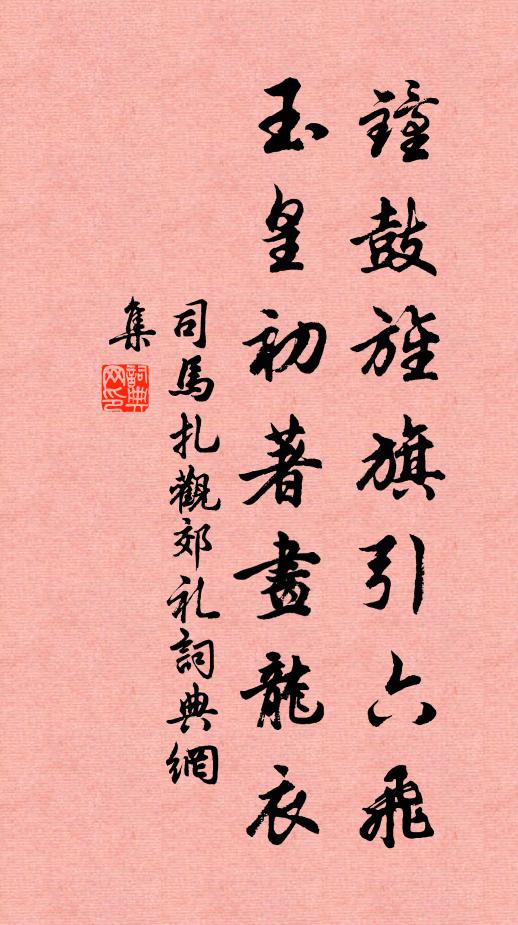 鐘鼓旌旗引六飛
玉皇初著畫龍衣
司馬扎觀郊礼詞典網
集
詞典
网印